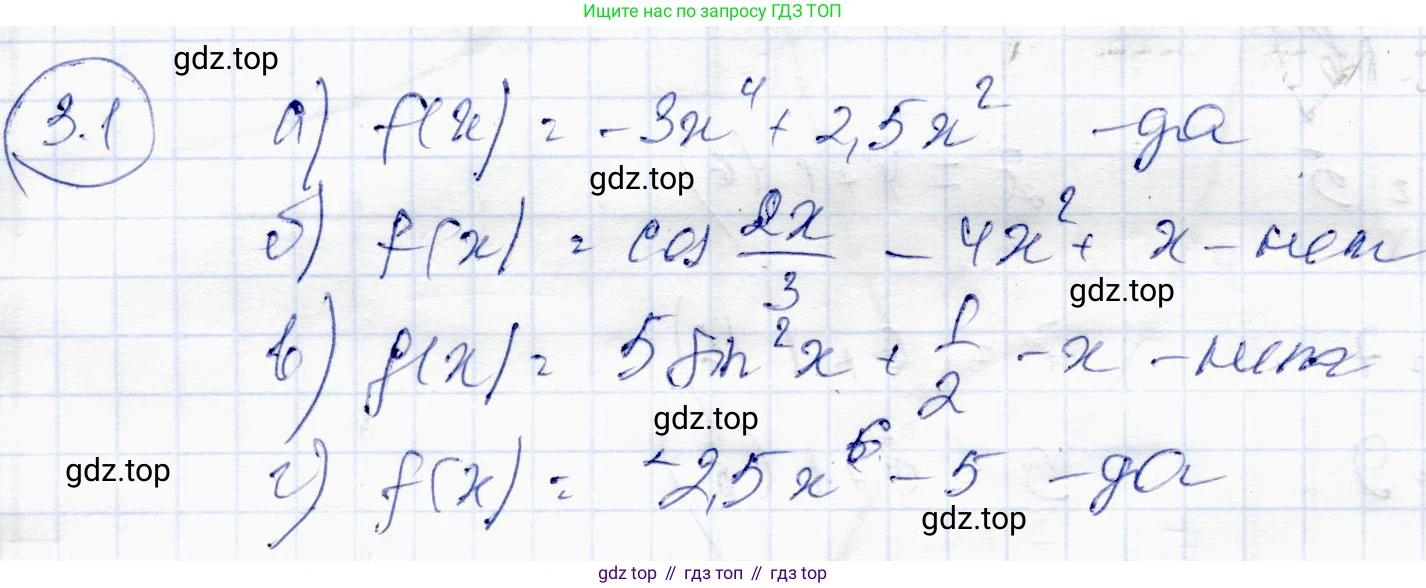 Ищите нас по запросу ГДЗ ТОП
gdz.top
3.1 а) f(x) = -3x⁴ + 2,5x² - да
gdz.top
б) f(x) = cos 2x/3 - 4x² + x - нет
gdz.top
в) g(x) = 5 sin²x + 1/2 - x - нет
gdz.top
gdz.top
г) f(x) = -2,5x⁶ - 5 - да
gdz.top
gdz top // гдз топ // gdz top